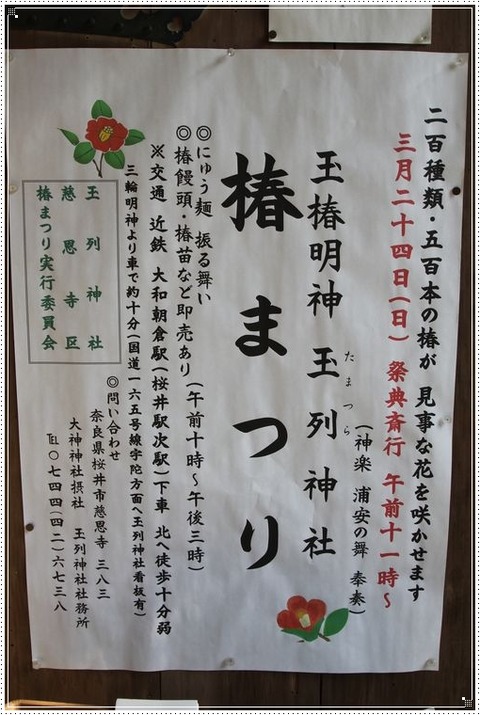 二百種類・五百本の椿が 見事な花を咲かせます
三月二十四日(日) 祭典斎行 午前十一時~
(神楽 浦安の舞 奉奏)
たまつら
玉椿明神 玉列神社
椿まつり
◎にゅう麺 振る舞い
◎椿饅頭・椿苗など即売あり(午前十時~午後三時)
※交通 近鉄 大和朝倉駅(桜井駅次駅)下車 北へ徒歩十分弱
三輪明神より車で約十分(国道一六五号線宇陀方面へ玉列神社看板有)
◎問い合わせ
奈良県桜井市慈恩寺 三八三
大神神社摂社 玉列神社社務所
℡〇七四四(四二)六七三八
玉列神社
慈恩寺区
椿まつり実行委員会